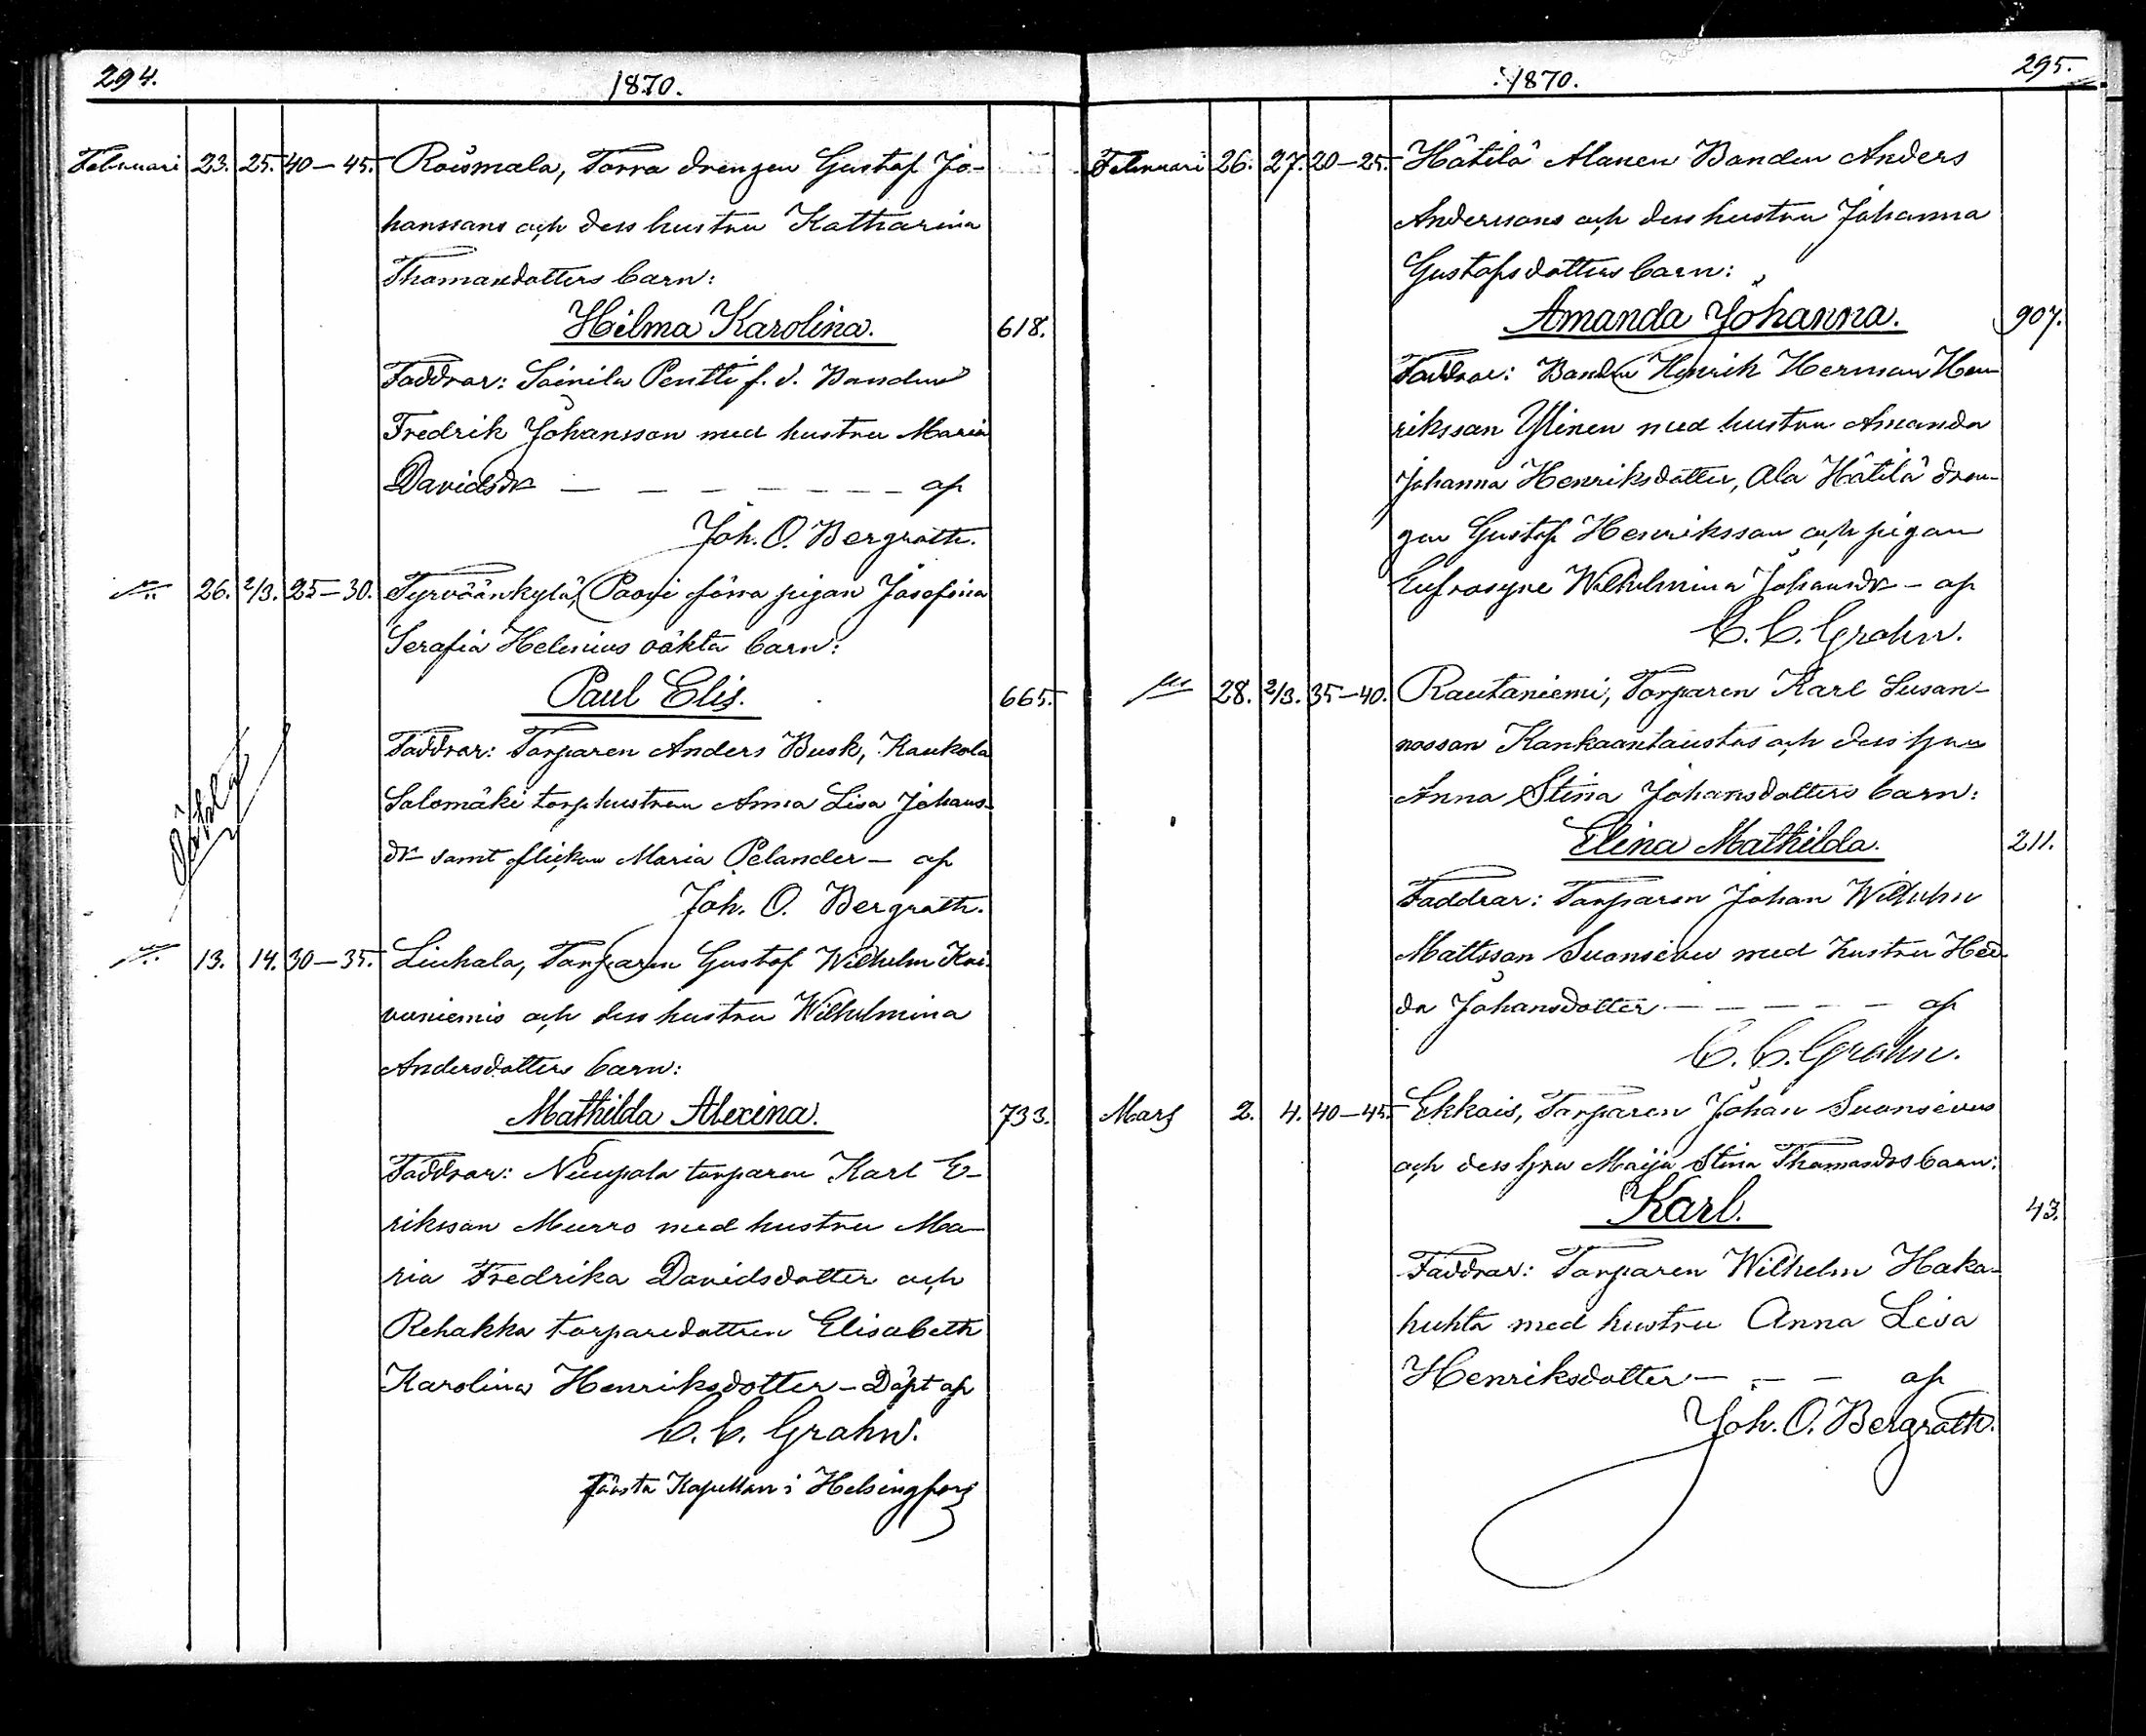 294.
1870.
Februari 23. 25. 40-45. Roismala, Torra drengen Gustaf Jo-
hanssons och dess hustru Katharina
Thomasdotters barn:
Hilma Karolina. 618.
Faddrar: Soinila Pentti f. d. Bonden
Fredrik Johansson med hustru Maria
Davidsdr — — — — — — — af
Joh. O. Bergroth.
26. 2/3. 25-30. Tyrväänkylä, Paavi förra pigan Josefina
Serafia Helenius oäkta barn:
Paul Elis. 665.
Oäkta
Faddrar: Torparen Anders Busk, Kaukola
Salomäki torphustrun Anna Lisa Johans-
dr samt flickan Maria Pelander — af
Joh. O. Bergroth.
13. 14. 30-35. Liuhala, Torparen Gustaf Wilhelm Koi-
vuniemis och dess hustru Wilhelmina
Andersdotters barn:
Mathilda Alexina. 733.
Faddrar: Nuupala torparen Karl E-
riksson Murro med hustru Ma-
ria Fredrika Davidsdotter och
Rehakka torparedottren Elisabeth
Karolina Henriksdotter — Döpt af
C. C. Grahn.
första Kapellan i Helsingfors
1870.
295.
Februari 26. 27. 20-25. Hätilä Alanen Bonden Anders
Anderssons och dess hustru Johanna
Gustafsdotters barn:
Amanda Johanna. 907.
Faddrar: Bonden Henrik Herman Hen-
riksson Ylinen med hustru Amanda
Johanna Henriksdotter, Ala Hätilä dren-
gen Gustaf Henriksson och pigan
Eufrosyne Wilhelmina Johansdr — af
C. C. Grahn.
28. 2/3. 35-40. Rautaniemi, Torparen Karl Susan-
nosson Kankaantaustas och dess hu
Anna Stina Johansdotters barn:
Elina Mathilda. 211.
Faddrar: Torparen Johan Wilhelm
Mattsson Suonsivu med hustru Hed-
da Johansdotter — — — — — af
C. C. Grahn.
Mars 2. 4. 40-45. Ekkois, Torparen Johan Suonsivus
och dess hru Maija Stina Thomasdrs barn:
Karl. 43.
Faddrar: Torparen Wilhelm Haka-
huhta med hustru Anna Lisa
Henriksdotter — — — af
Joh. O. Bergroth.